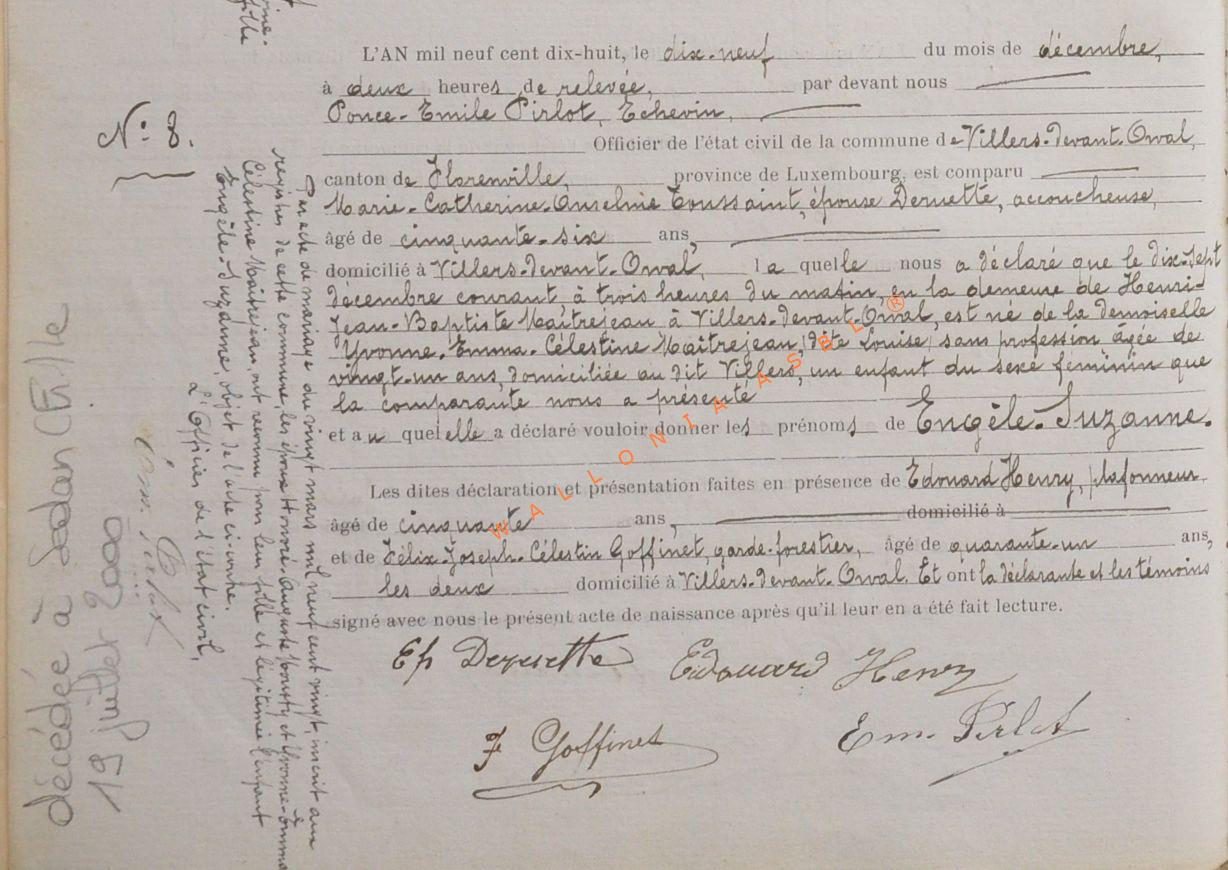 N° 8.
L'AN mil neuf cent dix-huit, le dix-neuf du mois de décembre,
à deux heures de relevée, par devant nous
Ponce-Emile Pirlot, Echevin,
Officier de l'état civil de la commune de Villers-devant-Orval,
canton de Florenville, province de Luxembourg, est comparu
Marie-Catherine-Anselmie Toussaint, épouse Deruette, accoucheuse,
âgé de cinquante-six ans,
domicilié à Villers-devant-Orval, la quelle nous a déclaré que le dix-sept
décembre courant, à trois heures du matin, en la demeure de Henri-
Jean-Baptiste Maîtrejean à Villers-devant-Orval, est né de la demoiselle
Yvonne-Emma-Célestine Maîtrejean, (dite Louise) sans profession âgée de
vingt-un ans, domiciliée au dit Villers, un enfant du sexe féminin que
la comparante nous a présenté
et au quel elle a déclaré vouloir donner les prénoms de Engèle-Suzanne.
Les dites déclaration et présentation faites en présence de Edouard Henry, plafonneur
âgé de cinquante ans, domicilié à
et de Félix-Joseph-Célestin Goffinet, garde-forestier, âgé de quarante-un ans,
les deux domicilié à Villers-devant-Orval. Et ont la déclarante et les témoins
signé avec nous le présent acte de naissance après qu'il leur en a été fait lecture.
Ep Deruette Edouard Henry
F Goffinet Em. Pirlot
Par acte de mariage du vingt mars mil neuf cent vingt, inscrit aux
registres de cette commune, les époux Honoré-Auguste et Yvonne-Emma
Célestine Maitrejean, ont reconnu pour leur fille et légitimée l'enfant
Engèle-Suzanne, objet de l'acte ci-contre.
L'Officier de l'état civil,
Em. Pirlot
décédée à Sedan (Fille
19 juillet 2000
WALLONIA ASBL ®